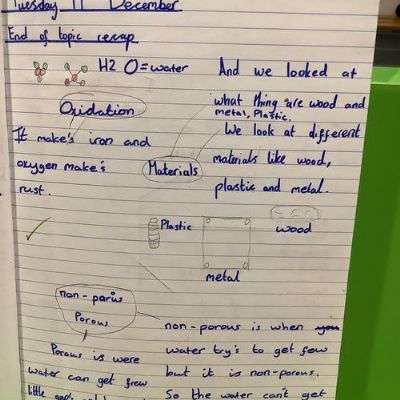 Tuesday 11 December
End of topic recap
H2 O = water
And we looked at
what thing are wood and
metal, Plastic.
Oxidation
It make's iron and
oxygen make's
rust.
Materials
We look at different
materials like wood,
plastic and metal.
Plastic
wood
metal
non-parus
Porous
Porous is were
water can get frew
little gap's
non-porous is when you
water try's to get few
but it is non-porous.
So the water can't get